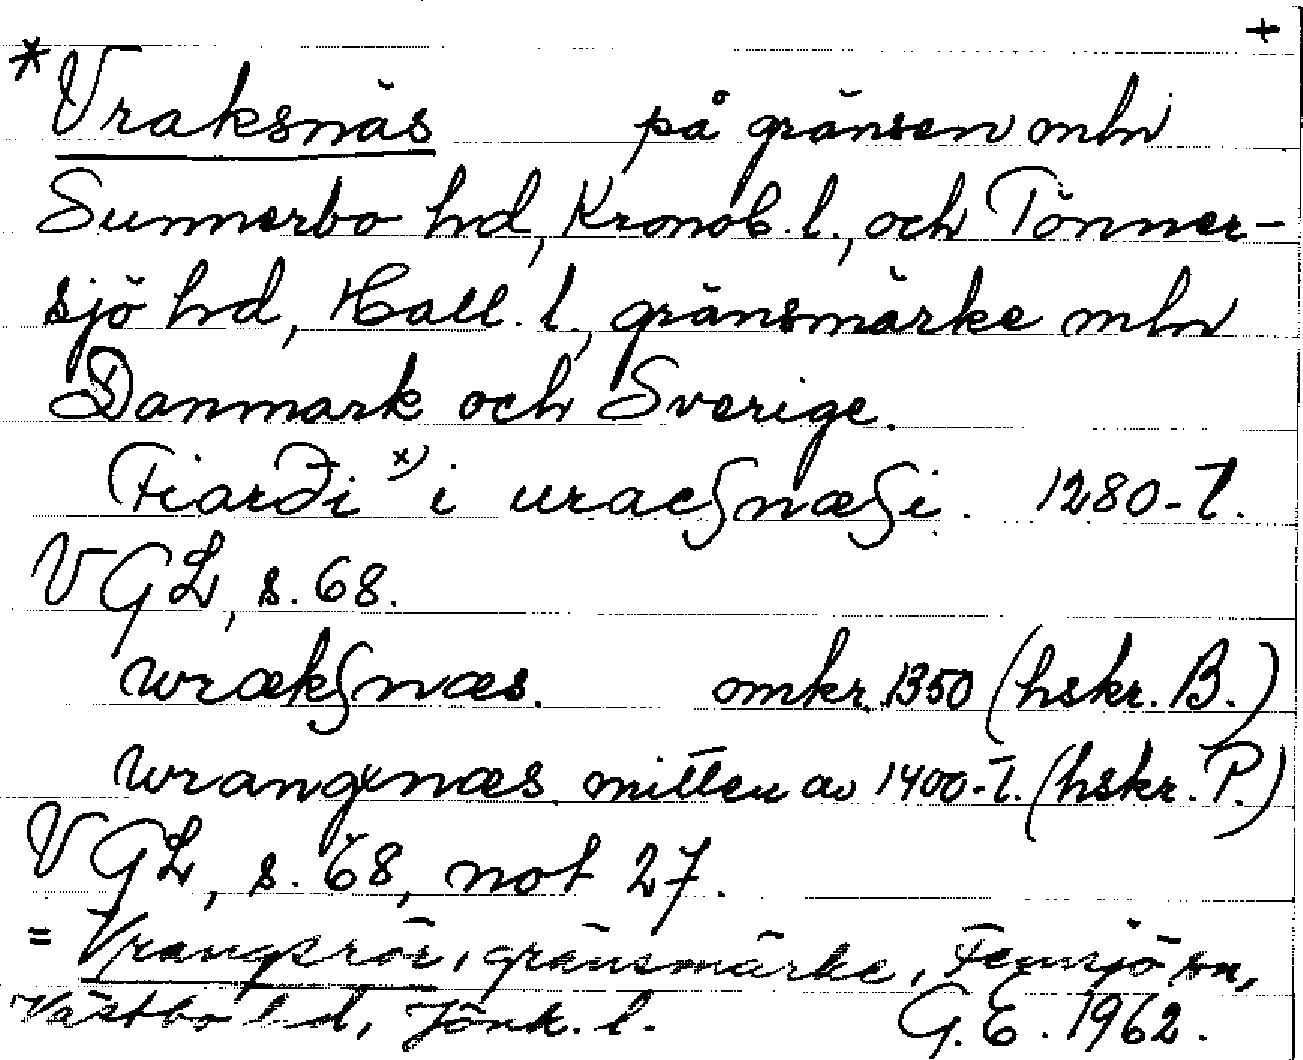 +
*Vraksnäs på gränsen mln
Sunnerbo hd, Kronob. l., och Tönner-
sjö hd, Hall. l., gränsmärke mln
Danmark och Sverige.
Fiarði x) i uracſnæſi. 1280-t.
VGL, s. 68.
wrækſnæs. omkr. 1350 (hskr. B.)
wrangxnæs mitten av 1400-t. (hskr. P.)
VGL, s. 68, not 27.
= Vrangsrör, gränsmärke, Femsjö sn,
Västbo hd, Jönk. l. G.E. 1962.